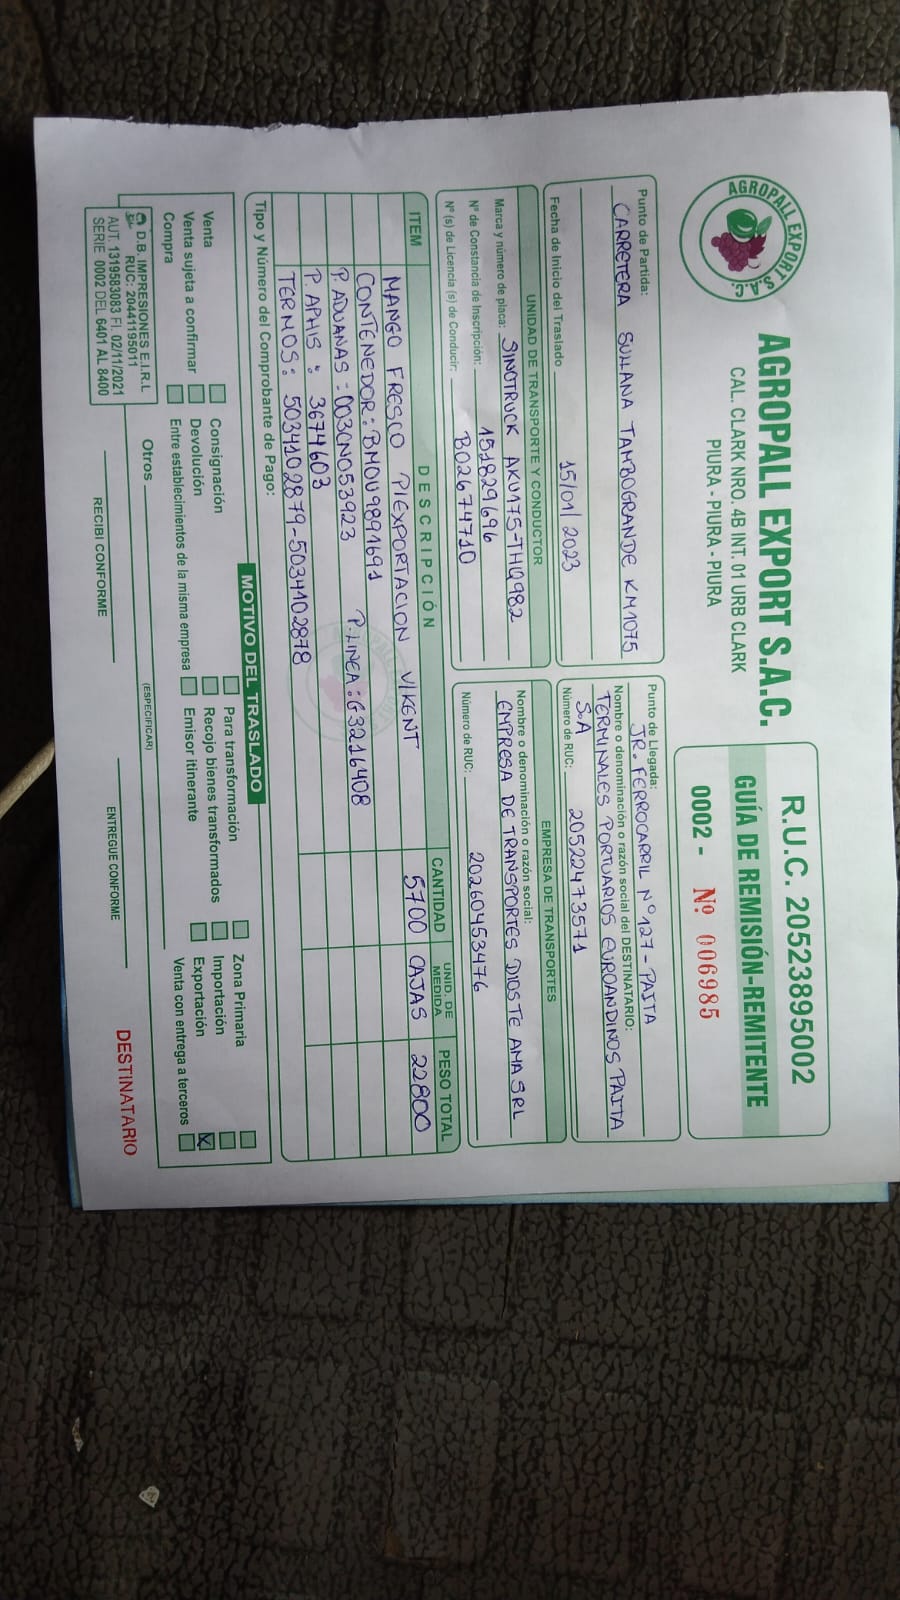 AGROPALL EXPORT S.A.C.
AGROPALL EXPORT S.A.C.
CAL. CLARK NRO. 4B INT. 01 URB CLARK
PIURA - PIURA - PIURA
R.U.C. 20523895002
GUÍA DE REMISIÓN-REMITENTE
0002 - Nº 006985
Punto de Partida:
CARRETERA SULLANA TAMBOGRANDE KM1075
Fecha de Inicio del Traslado 15/01/2023
Punto de Llegada:
JR. FERROCARRIL Nº127 - PAITA
Nombre o denominación o razón social del DESTINATARIO:
TERMINALES PORTUARIOS EUROANDINOS PAITA
S.A
Número de RUC: 20522473571
UNIDAD DE TRANSPORTE Y CONDUCTOR
Marca y número de placa: SINOTRUCK AKV175-THQ982
Nº de Constancia de Inscripción: 151829696
Nº (s) de Licencia (s) de Conducir: B02674710
EMPRESA DE TRANSPORTES
Nombre o denominación o razón social:
EMPRESA DE TRANSPORTES DIOS TE AMA SRL
Número de RUC: 20260453476
ITEM DESCRIPCIÓN CANTIDAD UNID. DE MEDIDA PESO TOTAL
MANGO FRESCO P/EXPORTACION V/KENT 5700 CAJAS 22800
CONTENEDOR: BMOU9891691 P.LINEA: G3216408
P. ADUANAS: 003CN053923
P. APHIS: 3674603
TERMOS: 5034102879-5034102878
Tipo y Número del Comprobante de Pago:
MOTIVO DEL TRASLADO
Venta Consignación Para transformación Zona Primaria
Venta sujeta a confirmar Devolución Recojo bienes transformados Importación
Compra Entre establecimientos de la misma empresa Emisor itinerante Exportación X
Venta con entrega a terceros
Otros
(ESPECIFICAR)
D.B. IMPRESIONES E.I.R.L
RUC: 20441195011
AUT. 1319583083 FI. 02/11/2021
SERIE 0002 DEL 6401 AL 8400
RECIBI CONFORME
ENTREGUE CONFORME
DESTINATARIO